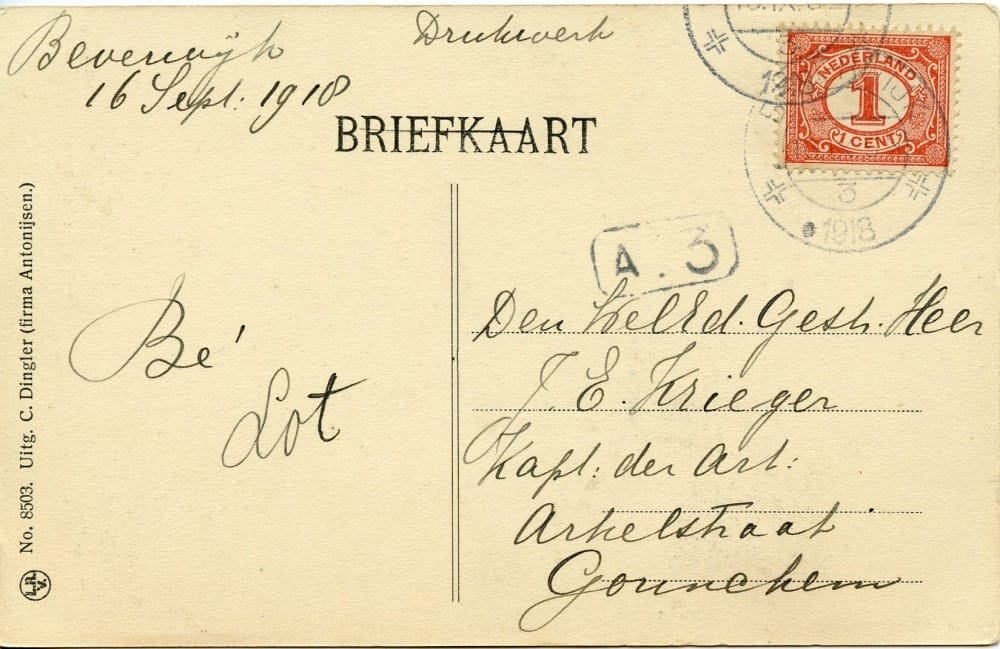 Beverwijk
16 Sept: 1918
Drukwerk
BRIEFKAART
NEDERLAND
1
1 CENT
3
1918
A. 3
Bé
Lot
Den WelEd. Gestr. Heer
J. E. Krieger
Kapt: der Art:
Arkelstraat
Gorinchem
No. 8503. Uitg. C. Dingler (firma Antonijsen.)